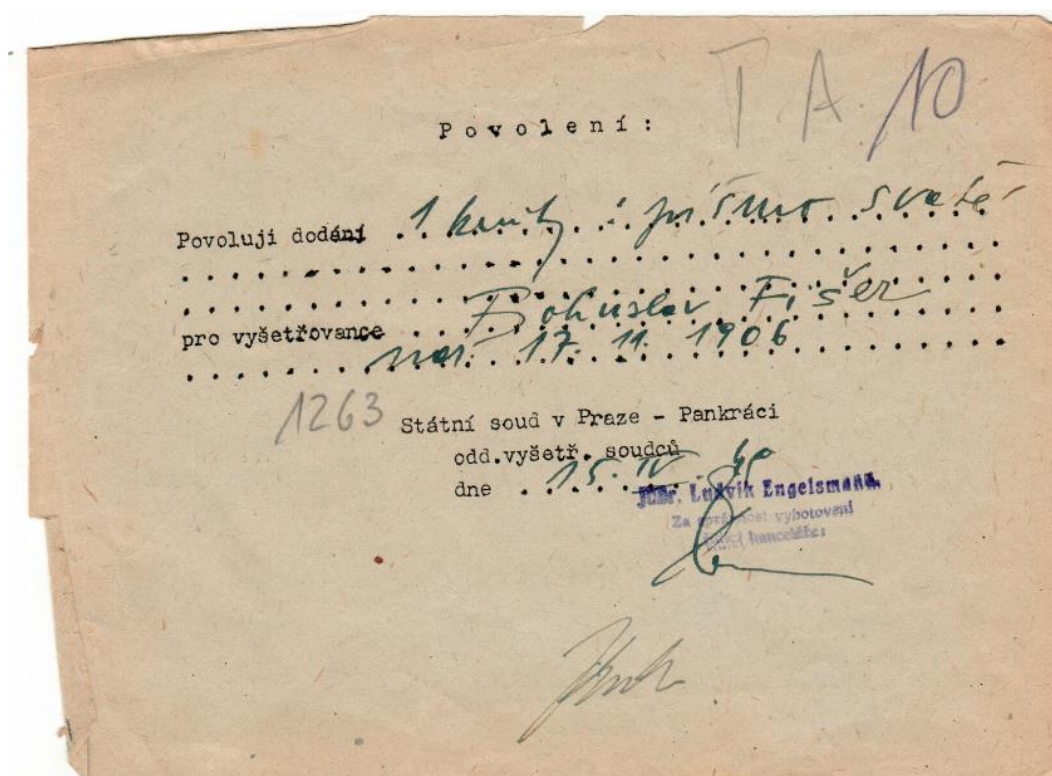 T A. 10
Povolení:
Povoluji dodání 1 knihy: písmo svaté
pro vyšetřovance Bohuslav Fišer
nar. 17. 11. 1906
1263
Státní soud v Praze - Pankráci
odd.vyšetř. soudců
dne 15. IV. 49
JUDr. Ludvík Engelsmann.
Za správnost vyhotovení
řídící kanceláře: